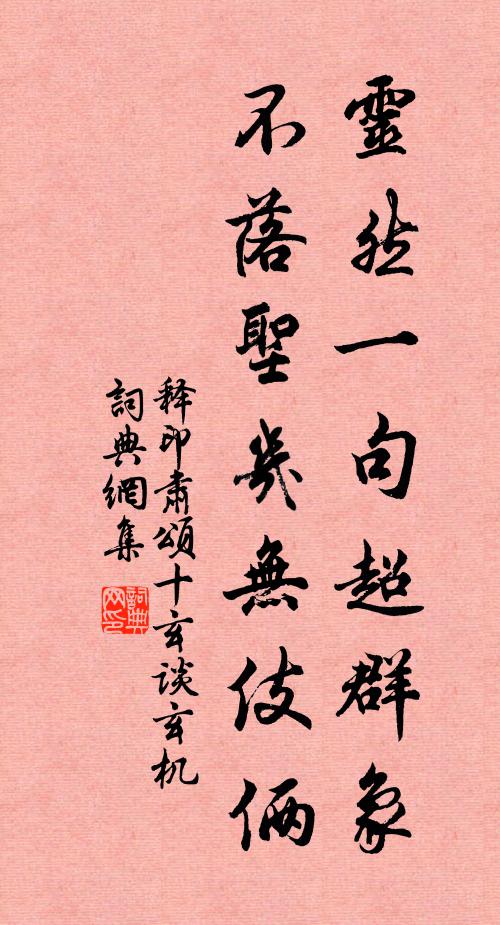 靈然一句超群象
不落聖幾無伎倆
释印肅頌十玄谈玄机
詞典網集
詞典网印